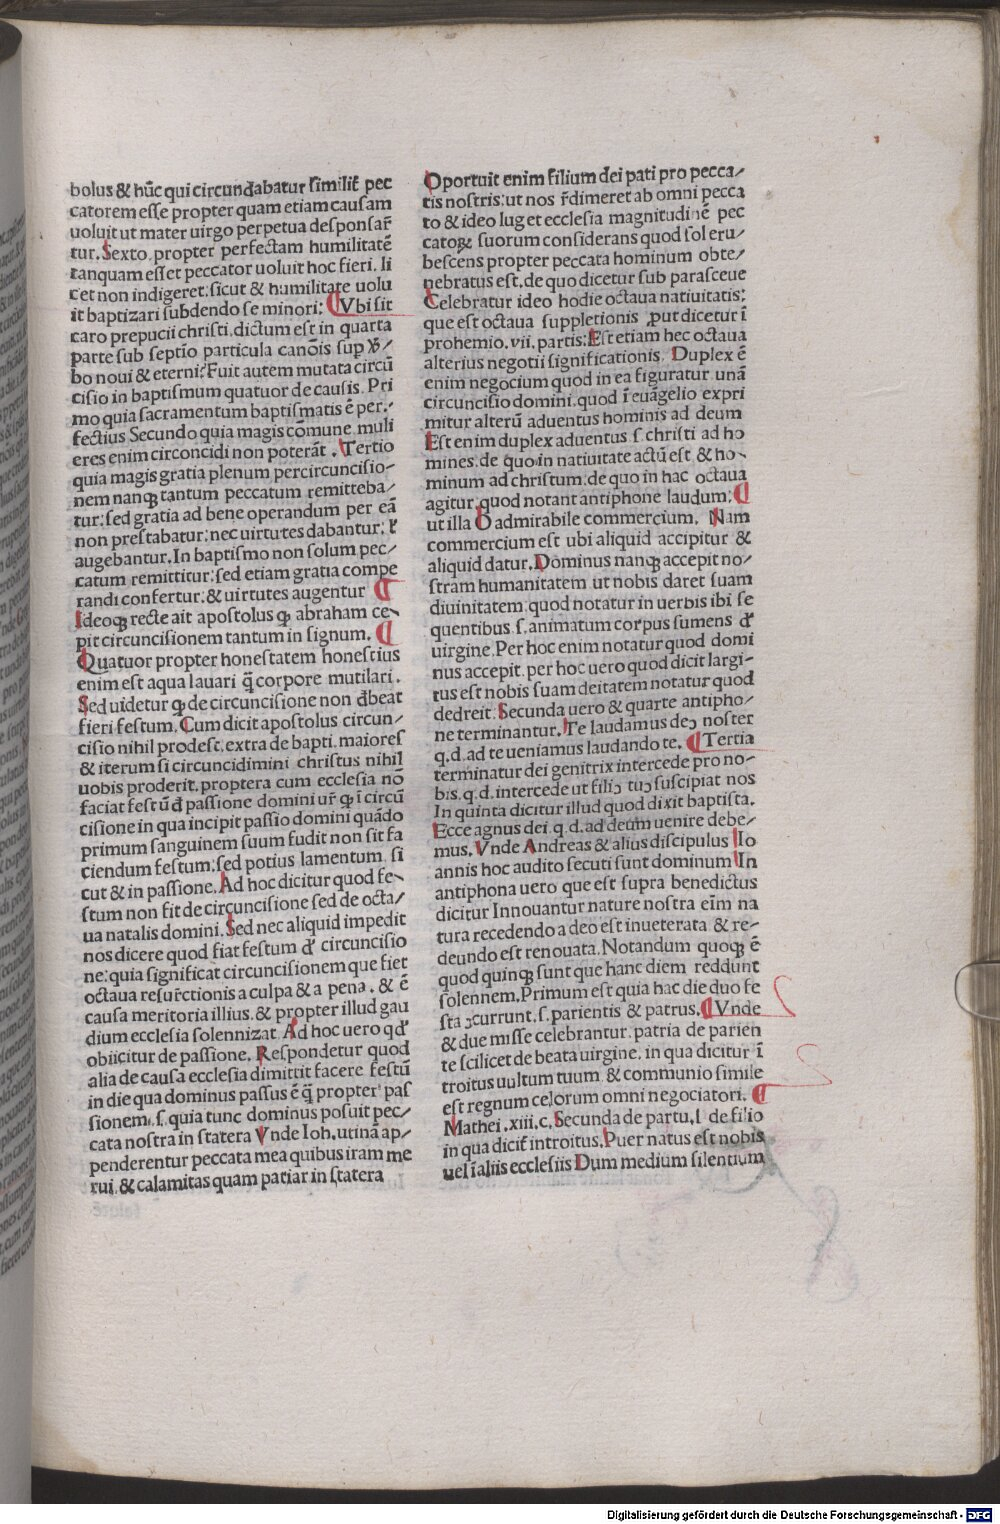 bolus & hūc qui circundabatur similiť pec
catorem esse propter quam etiam causam
uoluit ut mater uirgo perpetua desponsar̄
tur. Sexto propter perfectam humilitatē
tanquam esset peccator uoluit hoc fieri. li
cet non indigeret: sicut & humilitate uolu
it baptizari subdendo se minori: ¶ Vbi sit
caro prepucii christi. dictum est in quarta
parte sub septīo particula canōis sup
bo noui & eterni: Fuit autem mutata circū
cisio in baptismum quatuor de causis. Pri
mo quia sacramentum baptismatis ē per⸗
fectius Secundo quia magis cōmune. muli
eres enim circoncidi non poterāt. Tertio
quia magis gratia plenum percircuncisio⸗
nem nanqꝫ tantum peccatum remitteba⸗
tur: sed gratia ad bene operandum per eā
non prestabatur: nec uirtutes dabantur: ł
augebantur. In baptismo non solum pec⸗
catum remittitur: sed etiam gratia compe
randi confertur: & uirtutes augentur ¶
Ideoqꝫ recte ait apostolus ꝙ abraham ce⸗
pit circuncisionem tantum in signum. ¶
Quatuor propter honestatem honestius
enim est aqua lauari q̄ corpore mutilari.
Sed uidetur ꝙ de circuncisione non đbeat
fieri festum. Cum dicit apostolus circun⸗
cisio nihil prodest. extra de bapti. maiores
& iterum si circuncidimini christus nihil
uobis proderit. proptera cum ecclesia nō
faciat festū đ passione domini ur̄ ꝙ ī circū
cisione in qua incipit passio domini quādo
primum sanguinem suum fudit non sit fa
ciendum festum: sed potius lamentum si
cut & in passione. Ad hoc dicitur quod fe⸗
stum non fit de circuncisione sed de octa⸗
ua natalis domini. Sed nec aliquid impedit
nos dicere quod fiat festum đ circuncisio
ne: quia significat circuncisionem que fiet
octaua resur̄ctionis a culpa & a pena. & ē
causa meritoria illius. & propter illud gau
dium ecclesia solennizat Ad hoc uero qđ
obiicitur de passione. Respondetur quod
alia de causa ecclesia dimittit facere festū
in die qua dominus passus ē q̄ propter pas
sionem. s. quia tunc dominus posuit pec⸗
cata nostra in statera Vnde Ioh. utinā ap⸗
penderentur peccata mea quibus iram me
rui. & calamitas quam patiar in statera
Oportuit enim filium dei pati pro pecca⸗
tis nostris: ut nos r̄dimeret ab omni pecca
to & ideo luget ecclesia magnitudinē pec
catoꝝ suorum considerans quod sol eru⸗
bescens propter peccata hominum obte⸗
nebratus est. de quo dicetur sub parasceue
Celebratur ideo hodie octaua natiuitatis:
que est octaua suppletionis ꝓut dicetur ī
prohemio. vii. partis: Est etiam hec octaua
alterius negotii significationis. Duplex ē
enim negocium quod in ea figuratur unā
circuncisio domini. quod ī euāgelio expri
mitur alterū aduentus hominis ad deum
Est enim duplex aduentus s. christi ad ho
mines: de quo in natiuitate actū est & ho⸗
minum ad christum: de quo in hac octaua
agitur. quod notant antiphone laudum: ¶
ut illa O admirabile commercium. Nam
commercium est ubi aliquid accipitur &
aliquid datur. Dominus nanqꝫ accepit no⸗
stram humanitatem ut nobis daret suam
diuinitatem: quod notatur in uerbis ibi se
quentibus. s. animatum corpus sumens đ
uirgine. Per hoc enim notatur quod domi
nus accepit. per hoc uero quod dicit largi⸗
tus est nobis suam deitatem notatur quod
dedreit. Secunda uero & quarte antipho⸗
ne terminantur. Te laudamus deꝰ noster
q. d. ad te ueniamus laudando te. ¶ Tertia
terminatur dei genitrix intercede pro no⸗
bis. q. d. intercede ut filiꝰ tuꝰ suscipiat nos
In quinta dicitur illud quod dixit baptista.
Ecce agnus dei. q. d. ad deum uenire debe⸗
mus. Vnde Andreas & alius discipulus Io
annis hoc audito secuti sunt dominum In
antiphona uero que est supra benedictus
dicitur Innouantur nature nostra eīm na
tura recedendo a deo est inueterata & re⸗
deundo est renouata. Notandum quoqꝫ ē
quod quinqꝫ sunt que hanc diem reddunt
solennem. Primum est quia hac die duo fe
sta ꝯcurrunt. s. parientis & patrus. ¶ Vnde
& due misse celebrantur. patria de parien
te scilicet de beata uirgine. in qua dicitur ī
troitus uultum tuum. & communio simile
est regnum celorum omni negociatori. ¶
Mathei. xiii. c. Secunda de partu. l de filio
in qua dicit̄ introitus. Puer natus est nobis
uel ī aliis ecclesiis Dum medium silentium
Digitalisierung gefördert durch die Deutsche Forschungsgemeinschaft - DFG